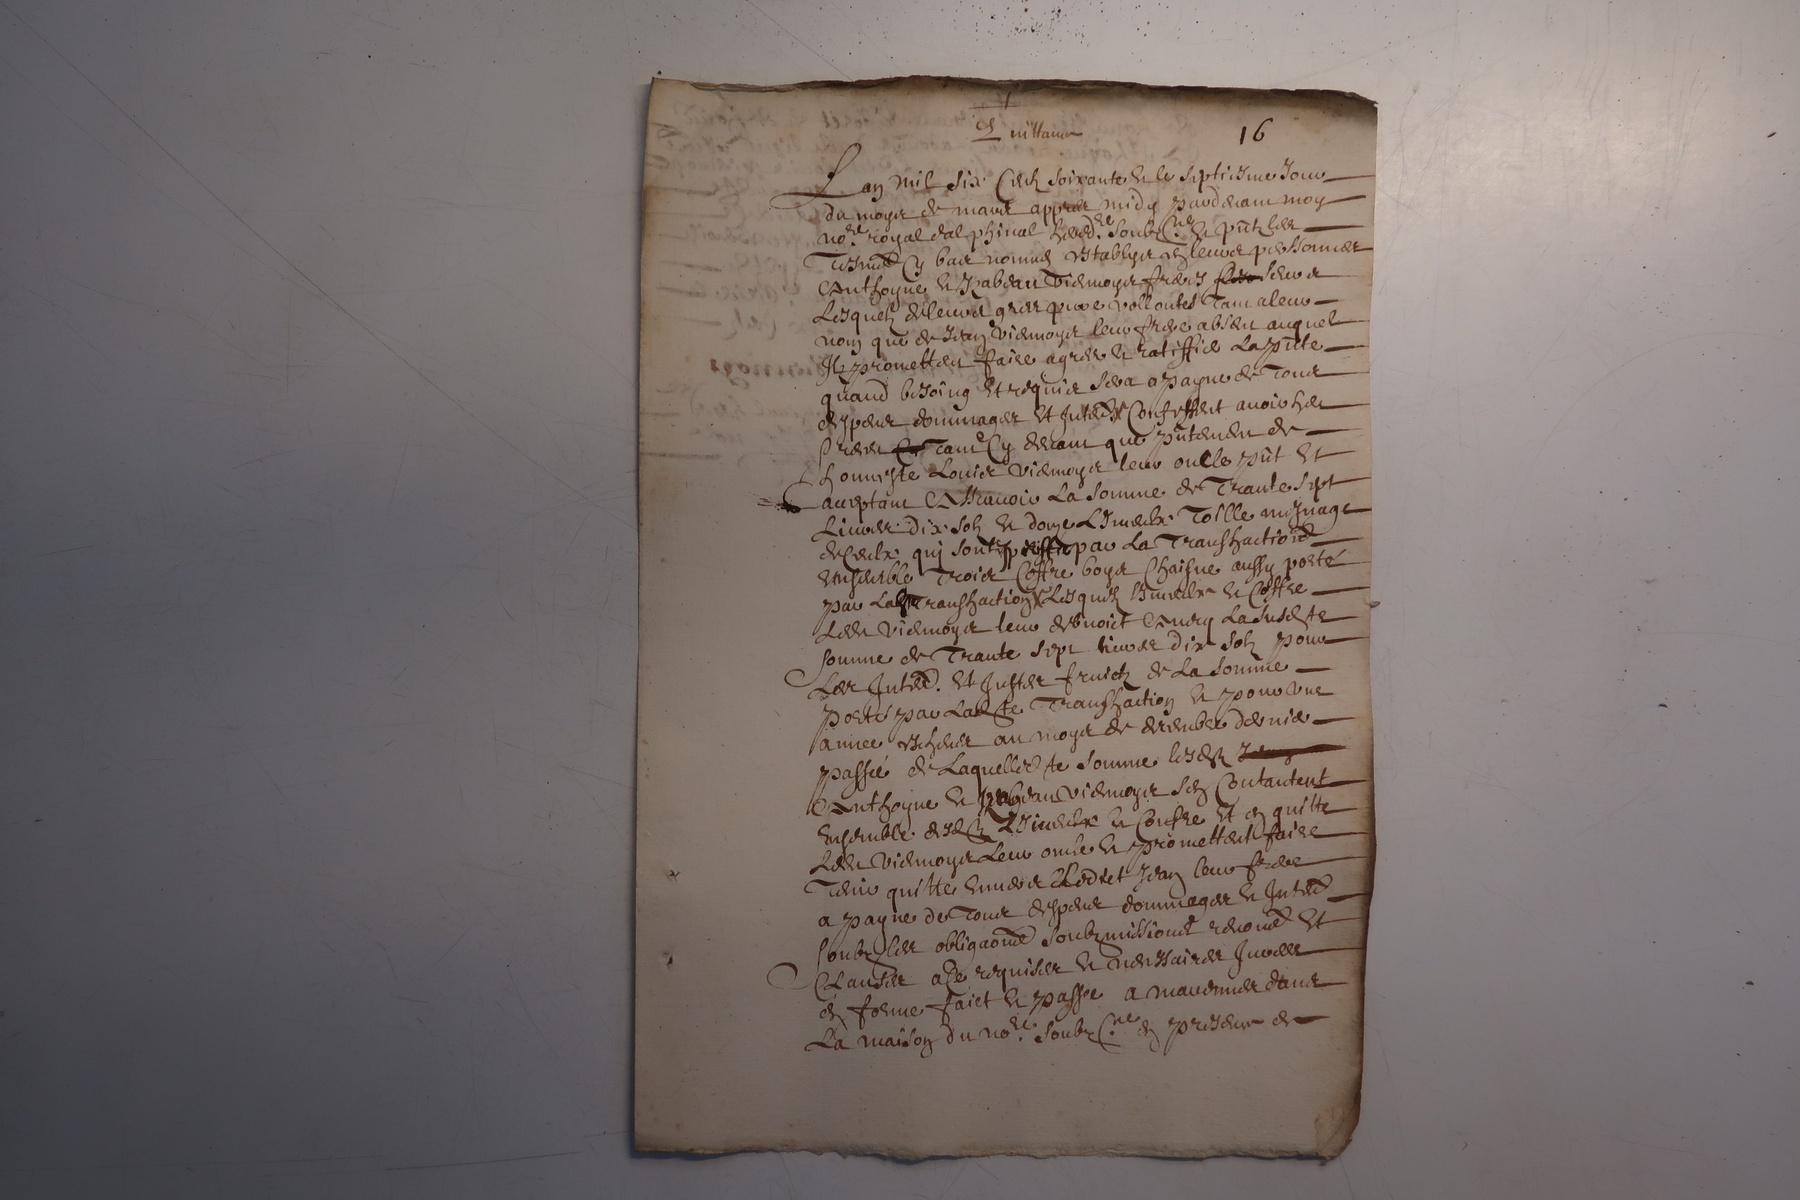 Quittance
16
Lan mil six Cens soixante et le septiesme Jour
du moys de mars appres midy pardevant moy
no.re royal dalphinal hered.re soubz.ne et pntz les
Tesmoings Cy bas nommes establys en leurs personnes
Anthoyne et Izabeau Viemoys freres seur
Lesquels de leurs gres pure vollontes Tant a leur
nom que de Jean Viemoys leur frere absent auquel
Ilz promettent faire agreer et ratiffie La pnte
quand besoing et requis sera a payne de Tous
despens dommages et Interestz Confessent avoir heu
Tant Cy devant que pntement de
honneste Louis Viemoys leur oncle pnt et
acceptant Assavoir La somme de Trante sept
Livres dix solz et Toille mesnage
qui sont par La Transaction
ensemble Trois Coffre boys aussy porté
par Lad Transaction Lesquels et Coffre
Led Viemoys leur La susd.te
somme de Trante sept livres dix solz pour
Les Interestz et Justes fruictz de La somme
porté par Lad.te Transaction et pour une
annee escheue au moys de decembre dernie
passé de Laquelle d.te somme lesd
Anthoyne et Izabeau Viemoys sen Contantent
Ensemble desd et Coffre et en quitte
Led Viemoys Leur oncle et promettent faire
Tenir quitte envers Ledict Jean leur frere
a payne de Tous despens dommages et Interestz
soubz les obligaons soubzmissions renons et
Clauses a Ce requises et necessaires Jurees
en forme faict et passe a dans
La maison du no.re soubz.ne en presence de